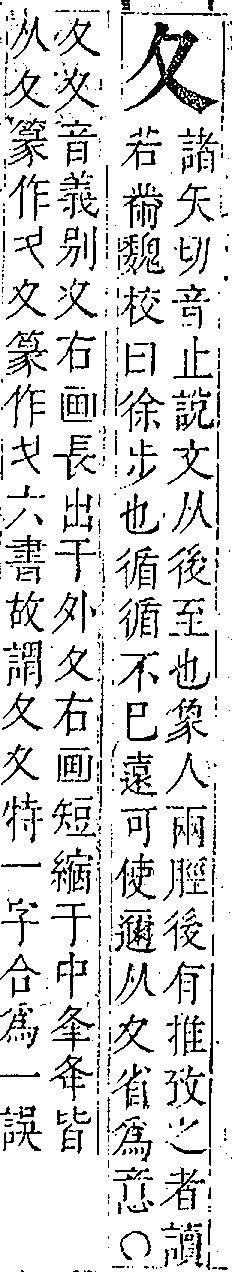 夂
諸矢切音止說文从後至也象人兩脛後有推攷之者讀
若黹魏校曰徐步也循循不巳遠可使邇从夂省爲意○
夂夊音義别夊右画長出于外夂右画短縮于中夆夅皆
从夂篆作夂夊篆作夊六書故謂夂夊特一字合爲一誤